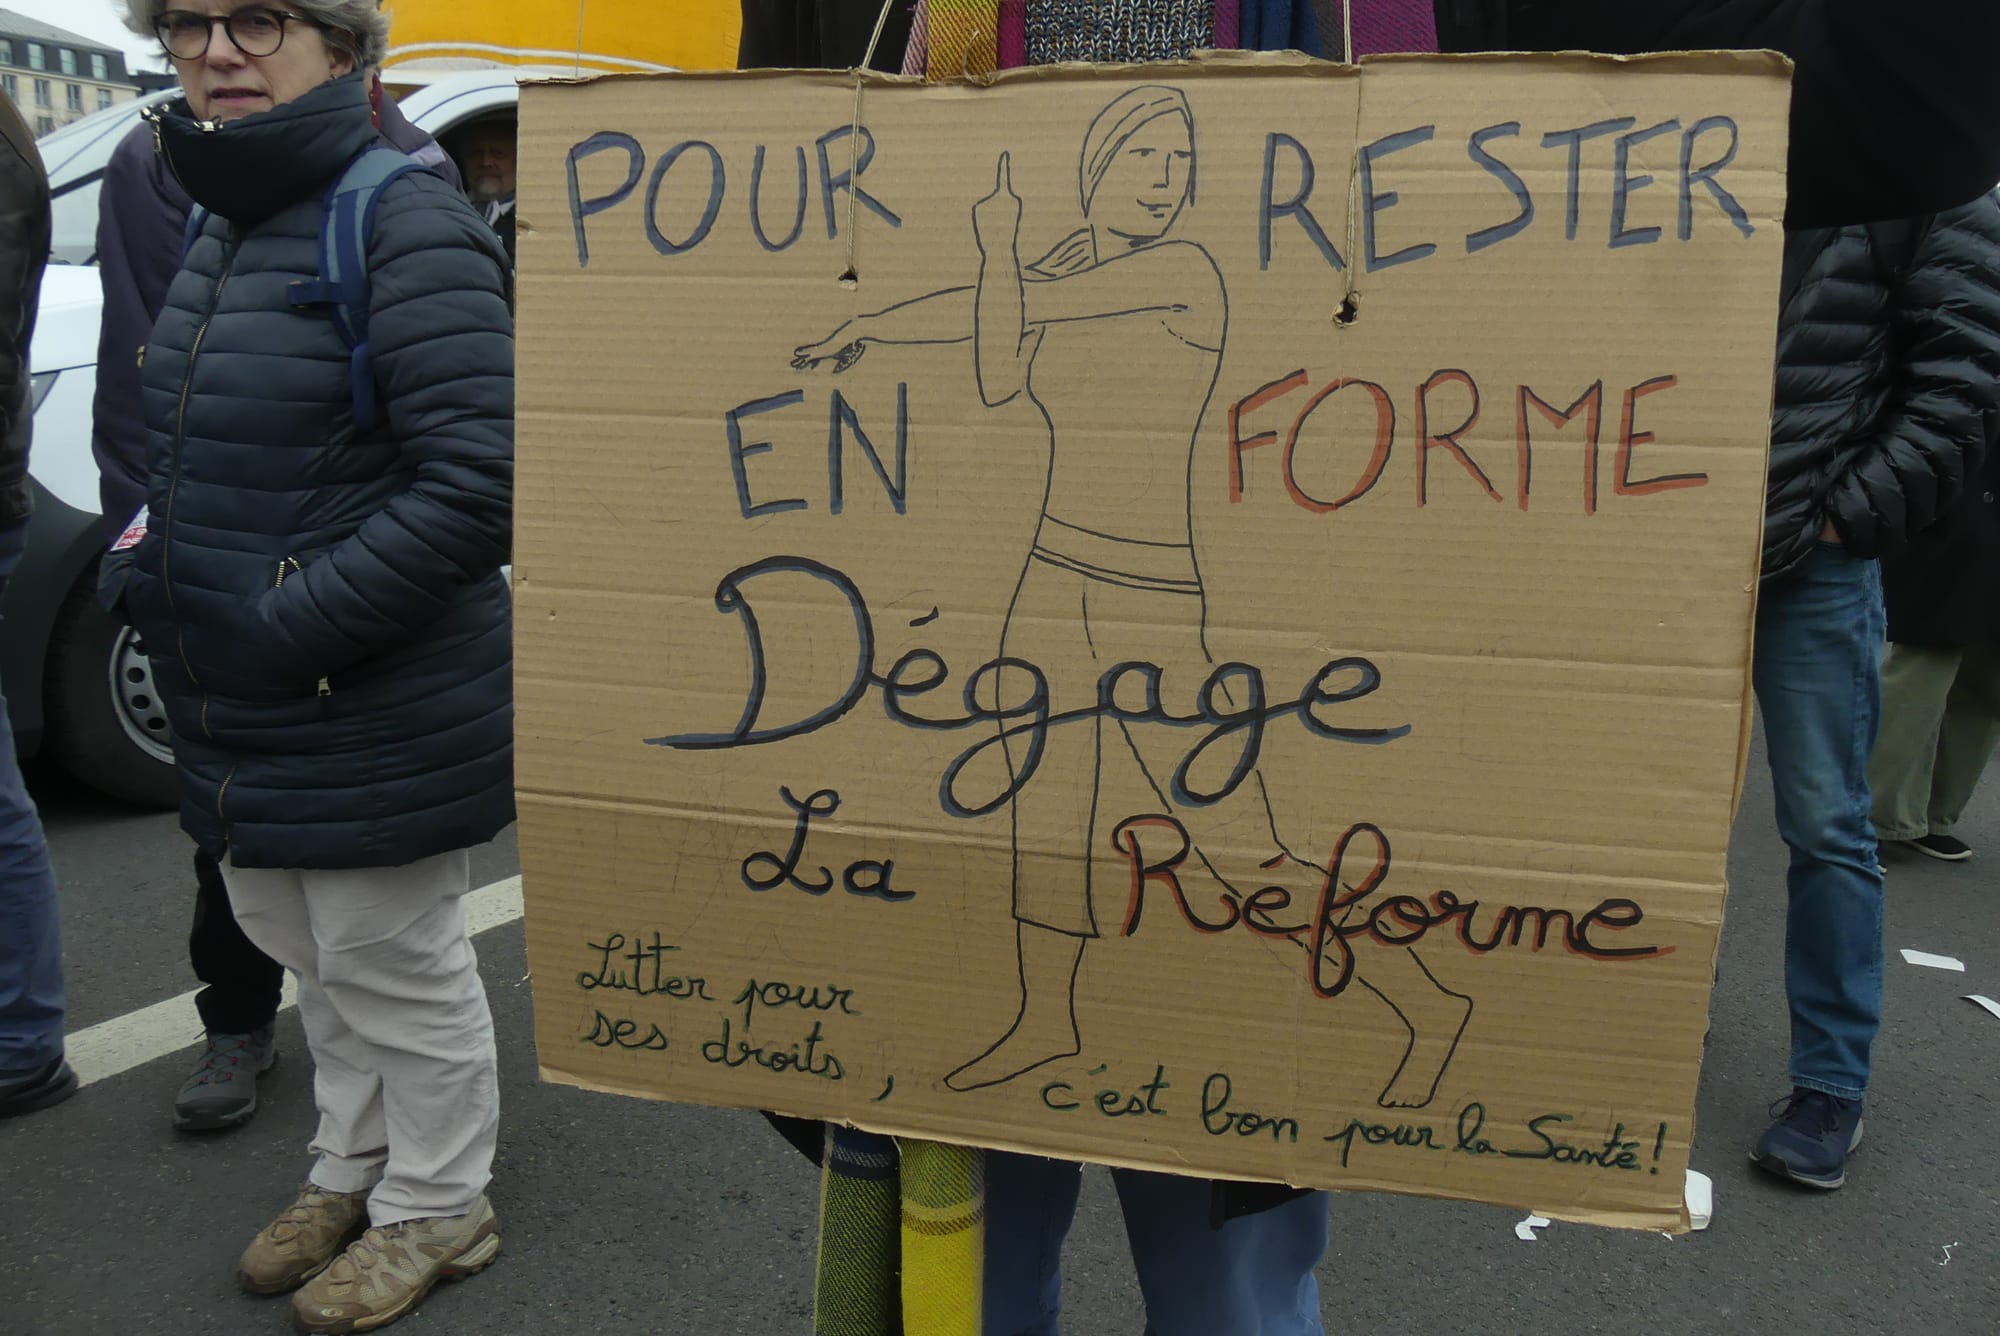 POUR RESTER
EN FORME
Dégage
La Réforme
Lutter pour
ses droits,
c'est bon pour la Santé!